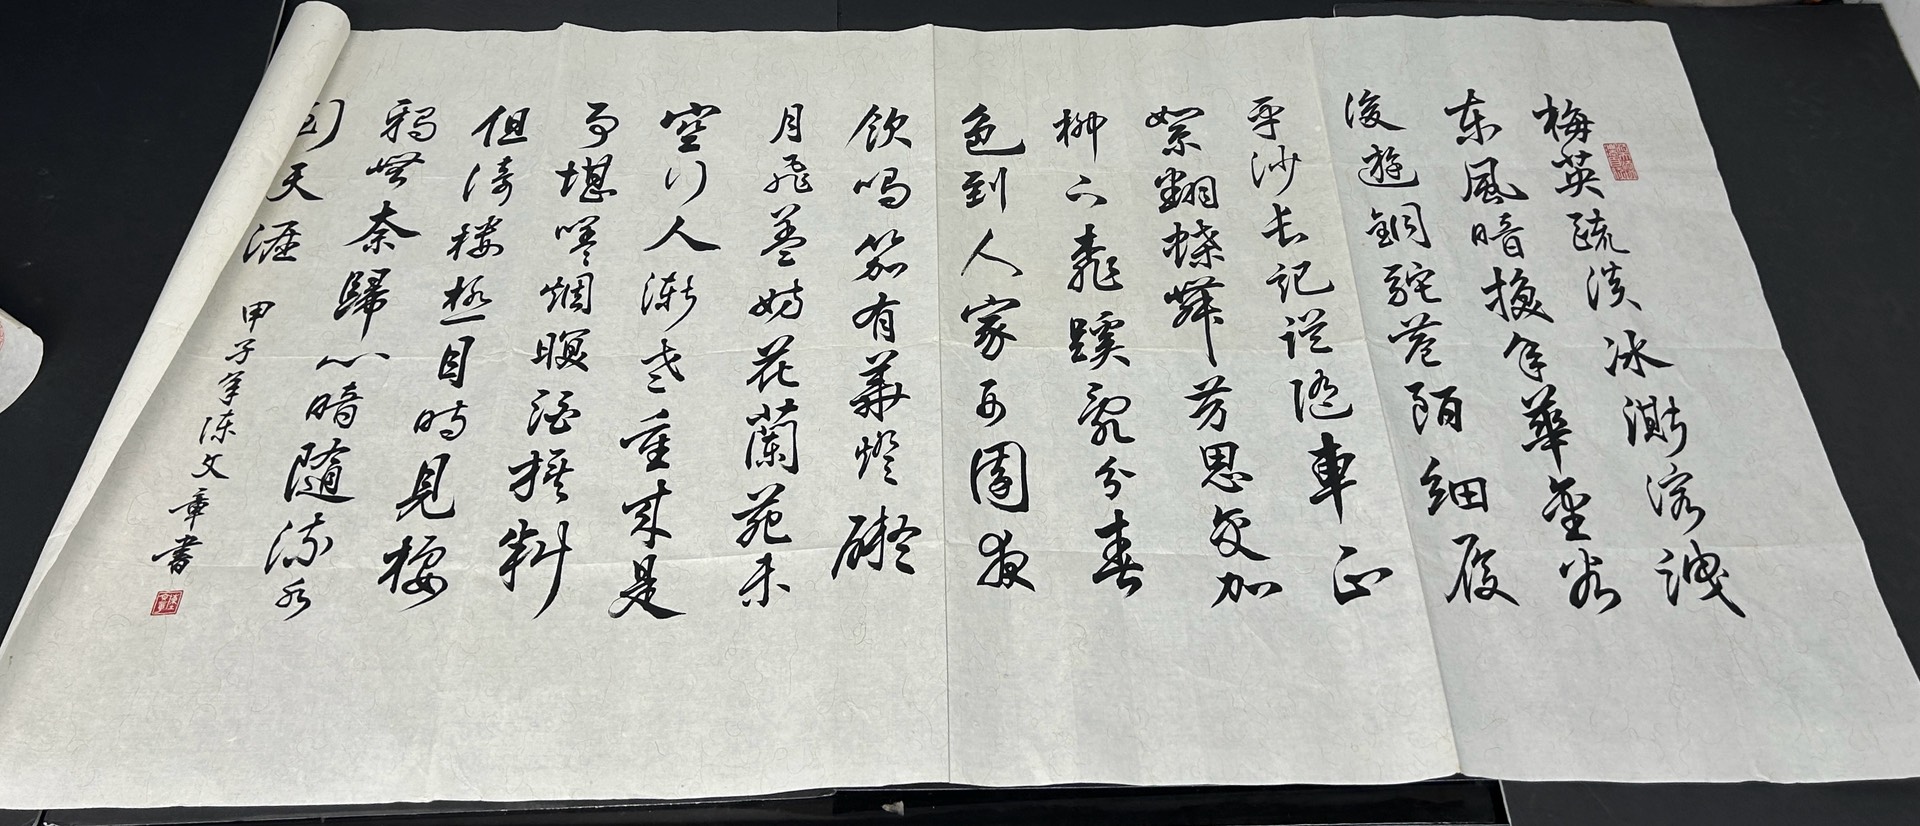 梅英疏淡冰澌溶洩
东風暗换年華金谷
俊遊銅駝巷陌細履
平沙长记误随車正
絮翻蝶舞芳思交加
柳下桃蹊乱分春
色到人家西園夜
飲鸣笳有華燈礙
月飛盖妨花蘭苑未
空行人漸老重来是
事堪嗟烟暝酒旗斜
但倚楼极目时見栖
鸦無奈歸心暗隨流水
到天涯
甲子年陈文章書